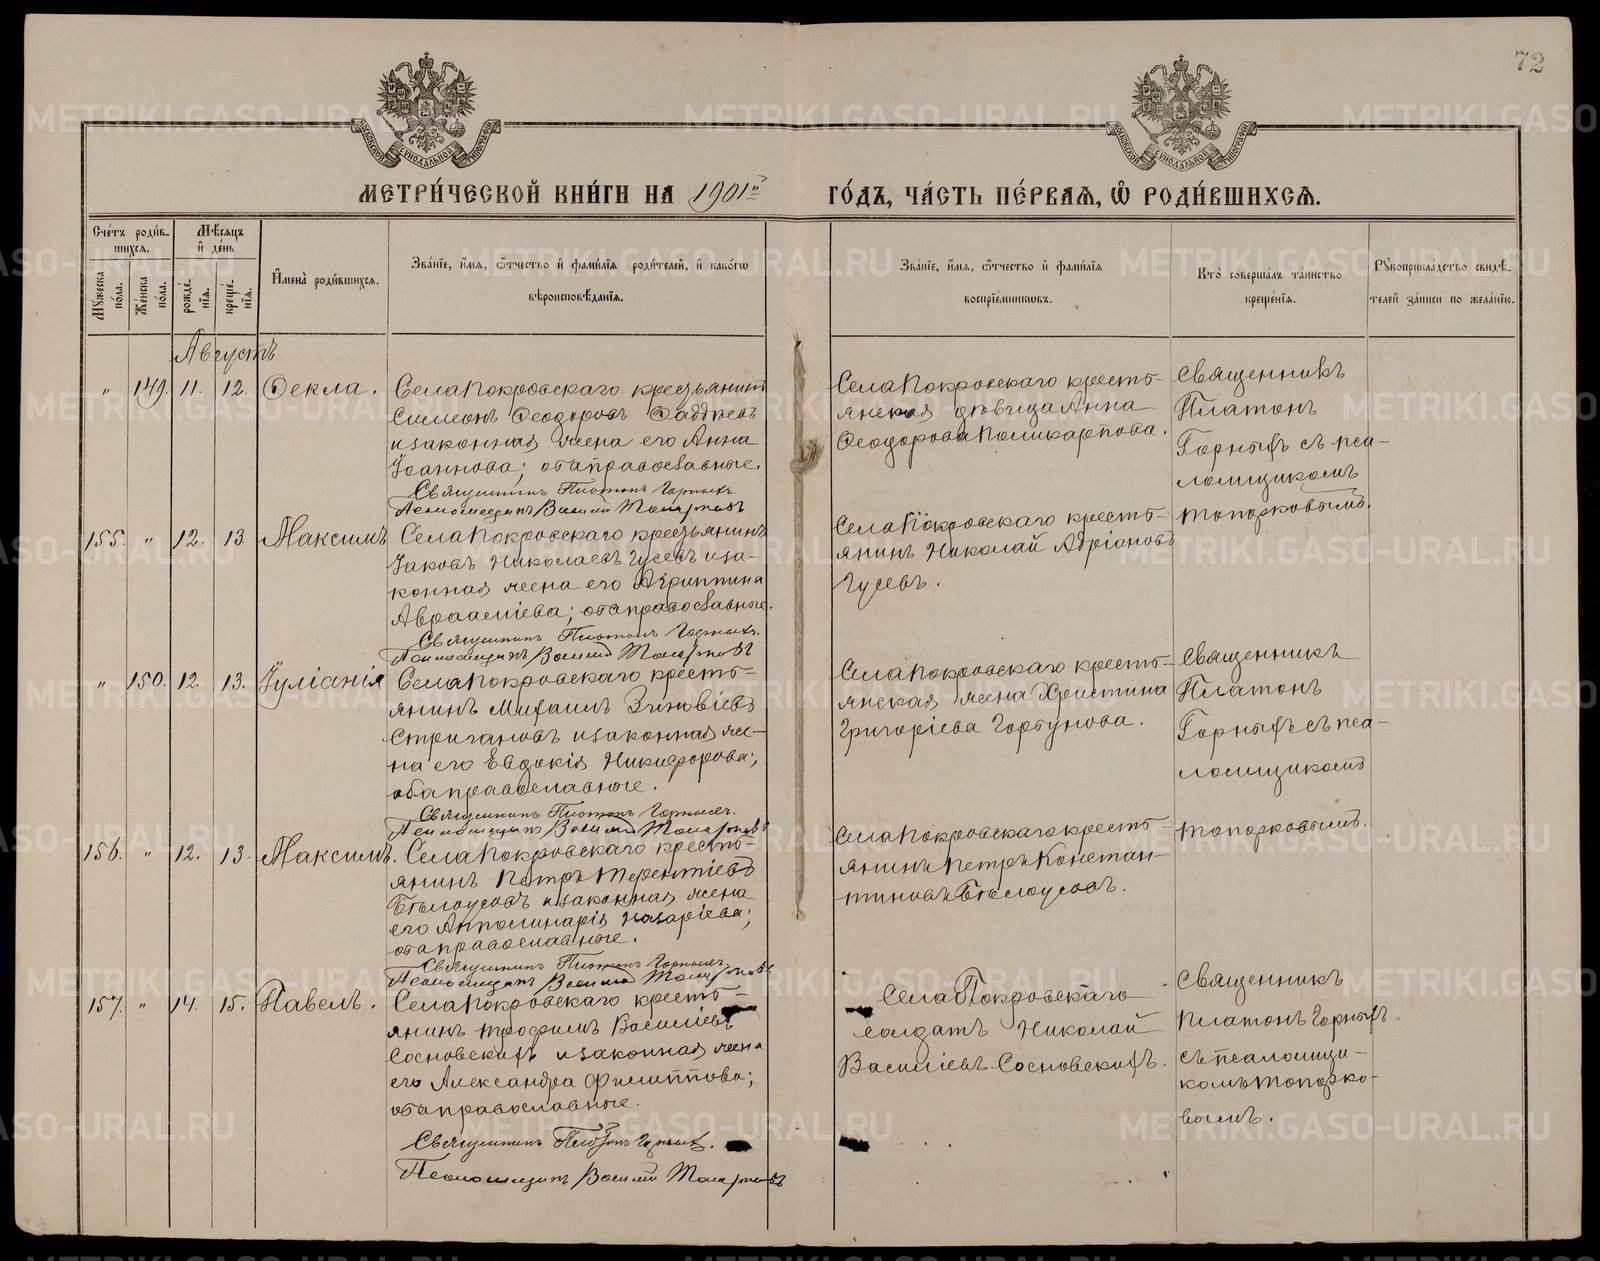 72
МОСКОВСКОЙ СѴНОДАЛЬНОЙ ТИПОГРАФІИ
МОСКОВСКОЙ СѴНОДАЛЬНОЙ ТИПОГРАФІИ
МЕТРИ́ЧЕСКОЙ КНИ́ГИ НА 1901й
ГО́ДЪ, ЧА́СТЬ ПЕ́РВАЯ, Ѽ РОДИ́ВШИХСЯ.
Сче́тъ роди́в-
шихся.
Мꙋжеска по́ла.
Же́нска по́ла.
Мѣ́сяцъ
и҆ де́нь
рожде́-
нїя.
креще́-
нїя.
И҆мена̀ роди́вшихся.
Зва́нїе, и҆́мя, ѻ҆́тчество и҆ фами́лїя роди́телей, и҆ како́гѡ
вѣроисповѣ́данїя.
Зва́нїе, и҆́мя, ѻ҆́тчество и҆ фами́лїя
воспрїе́мниковъ.
Кто̀ соверша́лъ та́инство
креще́нїя.
Рꙋкоприкла́дство свидѣ́-
телей за́писи по жела́нїю.
Августъ
" 149. 11. 12. Ѳекла.
Села Покровскаго крестьянинъ
Симеонъ Ѳеодоровъ Ѳаддѣевъ
и законная жена его Анна
Іоаннова; оба православные.
Священникъ Платонъ Горныхъ.
Псаломщикъ Василій Топорковъ
Села Покровскаго кресть-
янская дѣвица Анна
Ѳеодорова Поликарпова.
Священникъ
Платонъ
Горныхъ съ пса-
ломщикомъ
Топорковымъ.
155. " 12. 13. Максимъ
Села Покровскаго крестьянинъ
Іаковъ Николаевъ Гусевъ и за-
конная жена его Агриппина
Авраамiева; оба православные.
Священникъ Платонъ Горныхъ.
Псаломщикъ Василій Топорковъ
Села Покровскаго кресть-
янинъ Николай Адріановъ
Гусевъ.
" 150. 12. 13. Іуліанія
Села Покровскаго кресть-
янинъ Михаилъ Зиновіевъ
Стригановъ и законная же-
на его Евдокія Никифорова;
оба православные.
Священникъ Платонъ Горныхъ.
Псаломщикъ Василій Топорковъ
Села Покровскаго кресть-
янская жена Христина
Григоріева Горбунова.
Священникъ
Платонъ
Горныхъ съ пса-
ломщикомъ
Топорковымъ.
156. " 12. 13. Максимъ.
Села Покровскаго кресть-
янинъ Петръ Терентіевъ
Бѣлоусовъ и законная жена
его Апполинарія Назаріева;
оба православные.
Священникъ Платонъ Горныхъ.
Псаломщикъ Василій Топорковъ
Села Покровскаго кресть-
янинъ Петръ Констан-
тиновъ Бѣлоусовъ.
157. " 14. 15. Павелъ.
Села Покровскаго кресть-
янинъ Трофимъ Василіевъ
Сосновскихъ и законная жена
его Александра Филиппова;
оба православные.
Священникъ Платонъ Горныхъ.
Псаломщикъ Василій Топорковъ
Села Покровскаго
солдатъ Николай
Василіевъ Сосновскихъ.
Священникъ
Платонъ Горныхъ
съ псаломщи-
комъ Топорко-
вымъ.
METRIKI.GASO-URAL.RU